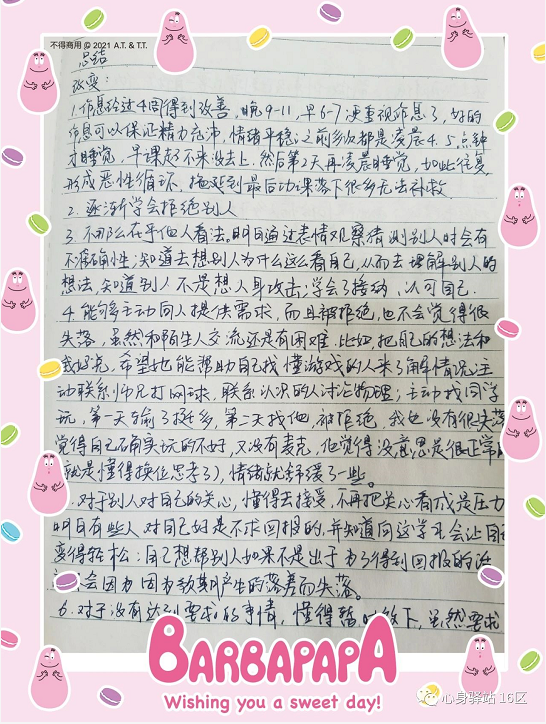 不得商用 © 2021 A.T. & T.T.
总结
改变:
1.作息经过4周得到改善,晚9-11,早6-7,更重视作息了,好的
作息可以保证精力充沛,情绪平稳;之前多次都是凌晨4.5点钟
才睡觉,早课起不来没去上,然后第2天再凌晨睡觉,如此往复
形成恶性循环,拖延到最后功课落下很多无法补救
2.逐渐学会拒绝别人
3.不那么在乎他人看法。明白通过表情观察猜测别人时会有
不准确性;知道去想别人为什么这么看自己,从而去理解别人的
想法,知道别人不是想人身攻击;学会了接纳、认可自己.
4.能够主动向人提供需求,而且被拒绝,也不会觉得很
失落,虽然和陌生人交流还是有困难.比如,把自己的想法和
我妈说,希望她能帮助自己找懂游戏的人来了解情况;主
动联系师兄打网球,联系认识的人讨论物理;主动找同学
玩,第一天输了挺多,第二天找他被拒绝,我也没有很失落
觉得自己确实玩的不好,又没有麦克,他觉得没意思是很正常的
就是懂得换位思考了),情绪就舒缓了一些。
.对于别人对自己的关心,懂得去接受,不再把关心看成是压力
明白有些人对自己好是不求回报的,并知道向这学习会让自己
变得轻松:自己想帮别人如果不是出于为了得到回报的
会因为
产生的落差而失落。
6.对于没有达到要求的事情,懂得暂时放下,虽然要求
BARBAPAPA
Wishing you a sweet day!
心身驿站 16区